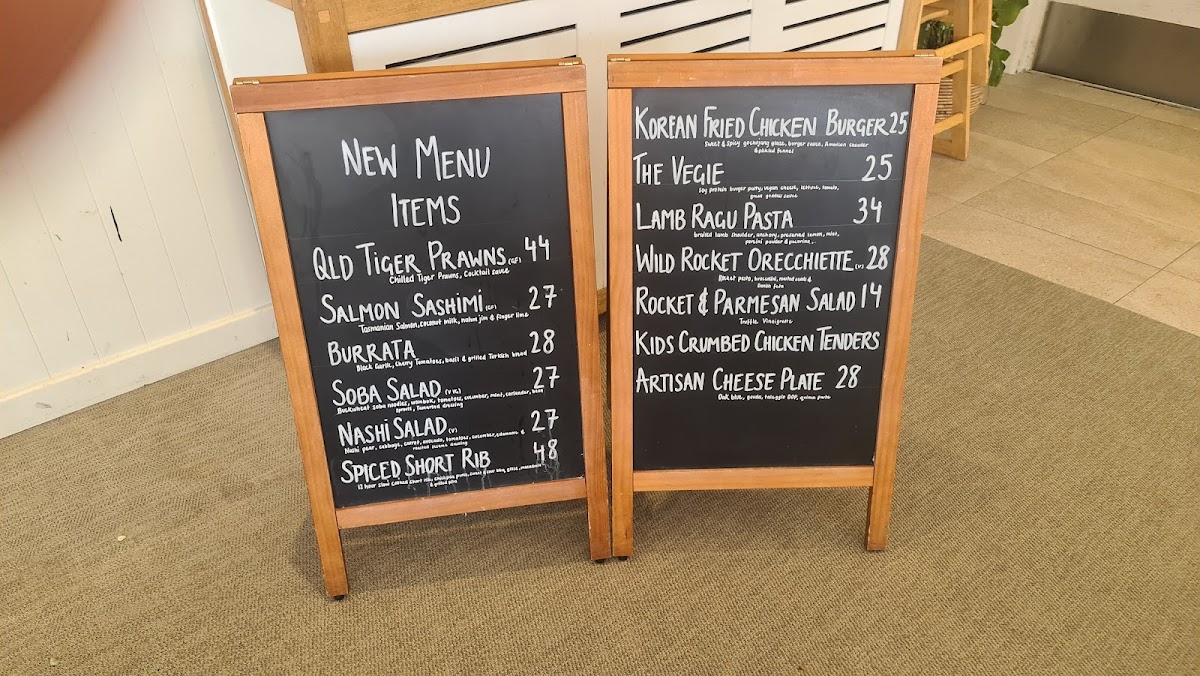 NEW MENU
ITEMS
QLD TIGER PRAWNS (GF) 44
Chilled Tiger Prawns, Cocktail sauce
SALMON SASHIMI (GF) 27
Tasmanian Salmon, coconut milk, nahm jim & finger lime
BURRATA 28
Black Garlic, Cherry Tomatoes, basil & grilled Turkish bread
SOBA SALAD 27
Buckwheat soba noodles, wombok, tomatoes, cucumber, mint, coriander, bean
sprouts, dressing
NASHI SALAD (V) 27
Nashi pear, cabbage, carrot, avocado, tomatoes, cucumber, edamame &
roasted sesame dressing
SPICED SHORT RIB 48
12 hour slow cooked short rib, chickpea puree,
& grilled pita
KOREAN FRIED CHICKEN BURGER 25
Sweet & Spicy gochujang glaze, burger sauce, American cheddar
& pickled fennel
THE VEGIE 25
Soy protein burger patty, vegan cheese, lettuce, tomato,
LAMB RAGU PASTA 34
braised lamb shoulder, anchovy, preserved lemon, mint,
porcini powder & pecorino
WILD ROCKET ORECCHIETTE (V) 28
Rocket pesto, broccolini, &
ROCKET & PARMESAN SALAD 14
Truffle Vinaigrette
KIDS CRUMBED CHICKEN TENDERS
ARTISAN CHEESE PLATE 28
Oak blue, gouda, taleggio DOP, quince paste